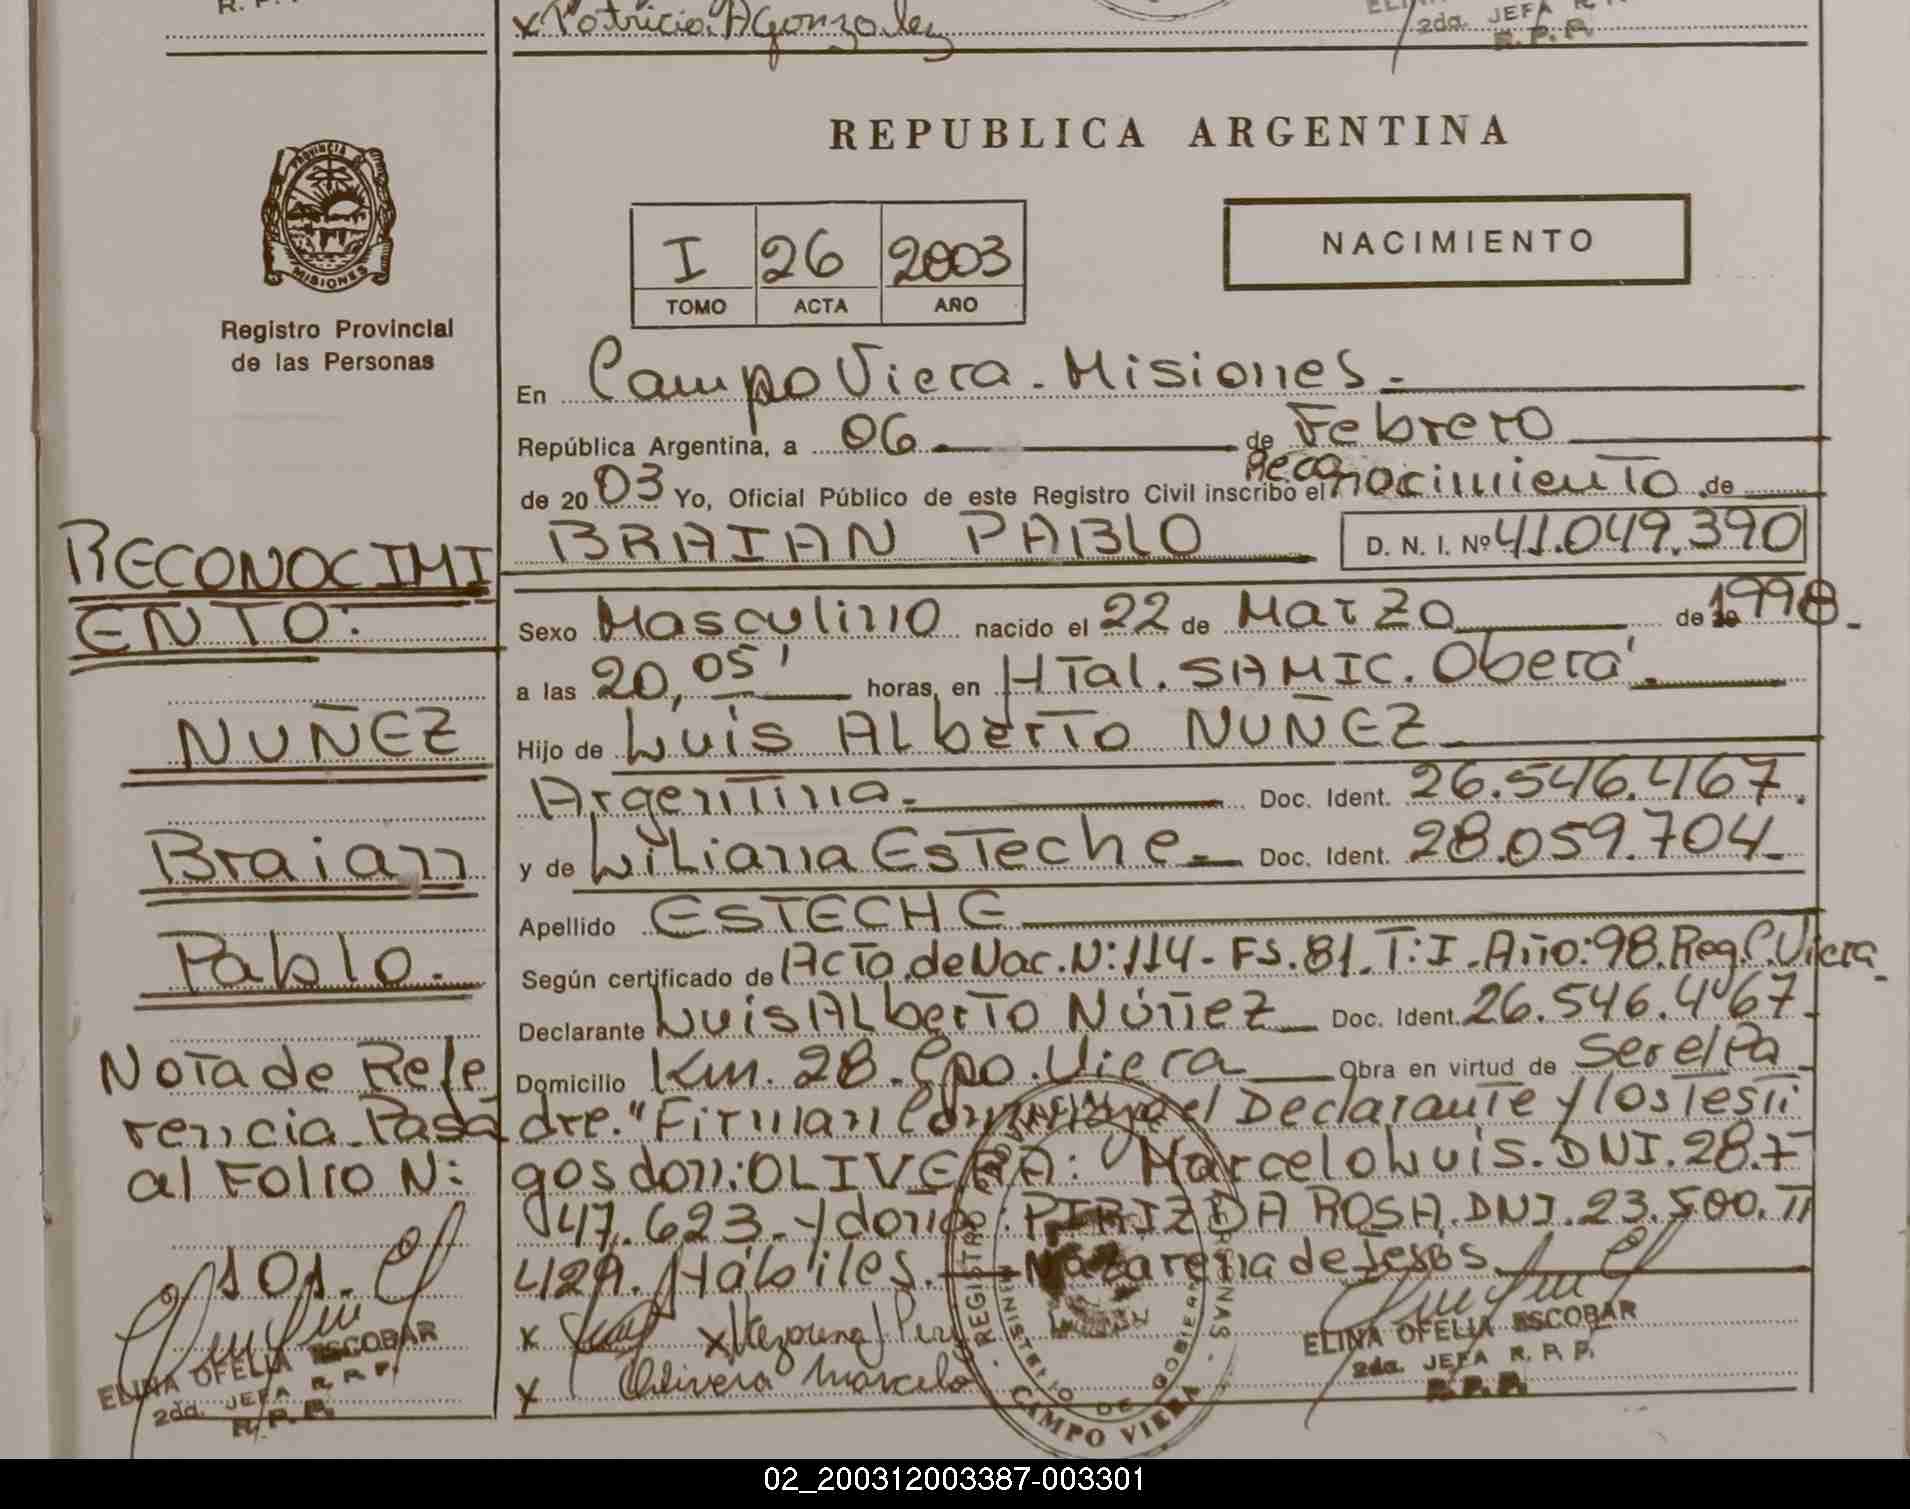 R. P.
x Patricia A Gonzalez
2da. JEFA R.
R. P. P.
REPUBLICA ARGENTINA
PROVINCIA
MISIONES
Registro Provincial
de las Personas
I 26 2003
TOMO ACTA AÑO
NACIMIENTO
En Campo Viera - Misiones.-
República Argentina, a 06 de Febrero
de 2003 Yo, Oficial Público de este Registro Civil inscribo el Reconocimiento de
BRAIAN PABLO D. N. I. Nº 41.049.390
Sexo Masculino nacido el 22 de Marzo de 1998.-
a las 20,05' horas, en HTal. SAMIC. Oberá.
Hijo de Luis Alberto NUÑEZ
Argentina.- Doc. Ident. 26.546.467.
y de Liliana Esteche.- Doc. Ident. 28.059.704-
Apellido ESTECHE
Según certificado de Acta de Nac. N: 114- Fs. 81. T: I. Año: 98. Reg. C. Viera-
Declarante Luis Alberto Núñez Doc. Ident. 26.546.467-
Domicilio Km. 28. Cpo. Viera Obra en virtud de Ser el Pa
dre." Firman Conmigo el Declarante y los Testi
gos don: OLIVERA: Marcelo Luis. DNI. 28.7
47.623- y doña: PIRIZ DA ROSA. DNI. 23.500.
429. Hábiles.- Nazarena de Jesús
x x Nazarena Piriz
x Olivera Marcelo
RECONOCIMI
ENTO:
NUÑEZ
Braian
Pablo.
Nota de Refe
rencia. Pasa
al Folio N:
101.
ELINA OFELIA ESCOBAR
2da. JEFA R. P. P.
R. P. P.
REGISTRO PROVINCIAL
MINISTERIO DE GOBIERNO
CAMPO VIERA
ELINA OFELIA ESCOBAR
2da. JEFA R. P. P.
R. P. P.
02_200312003387-003301